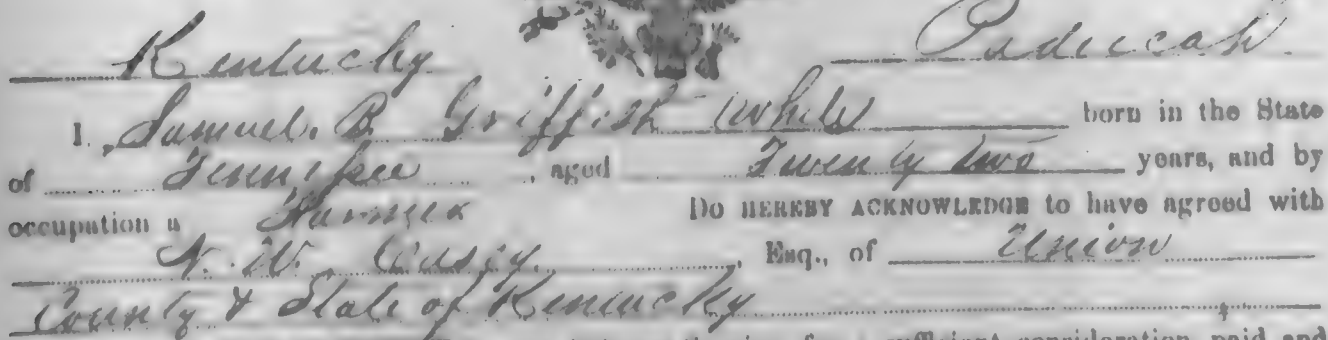 Kentucky Paducah.
I, Samuel. B. Griffith White born in the State
of Tennessee, aged Twenty two years, and by
occupation a Farmer Do HEREBY ACKNOWLEDGE to have agreed with
N. W. Casey, Esq., of Union
County & State of Kentucky
sufficient consideration paid and